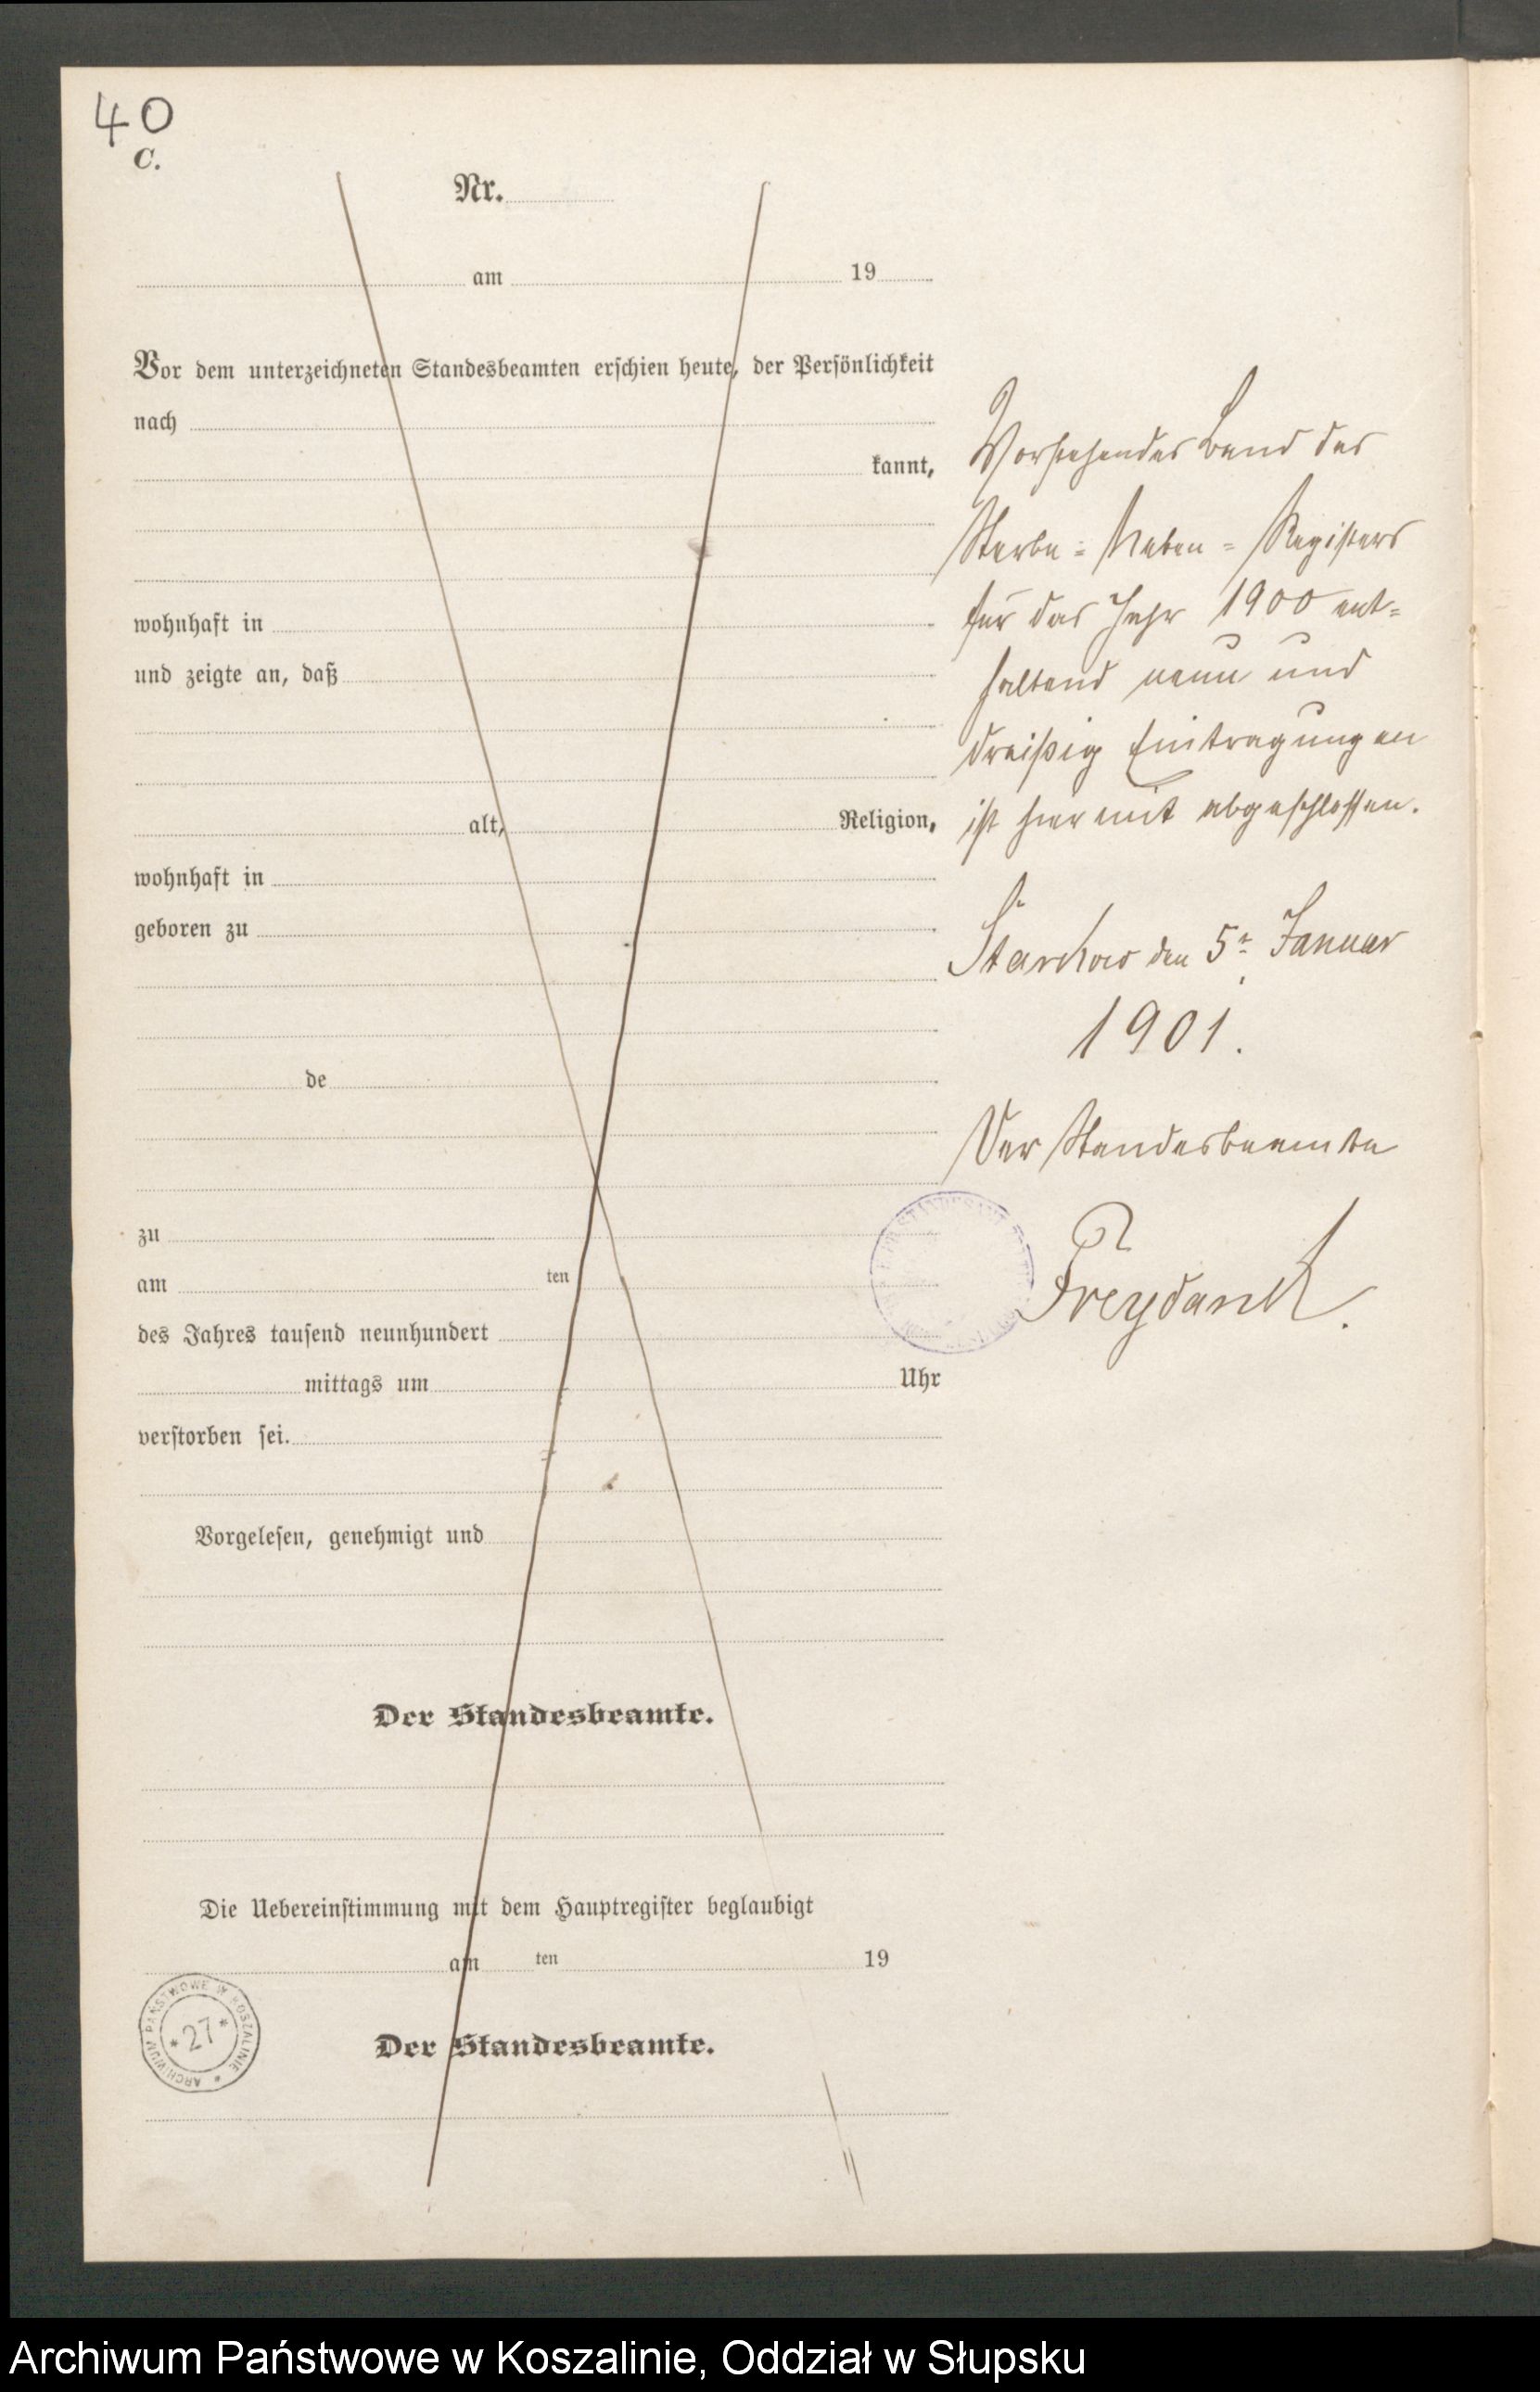 40
C.
Nr.
am 19
Vor dem unterzeichneten Standesbeamten erschien heute, der Persönlichkeit
nach
kannt,
wohnhaft in
und zeigte an, daß
alt, Religion,
wohnhaft in
geboren zu
de
zu
am ten
des Jahres tausend neunhundert
mittags um Uhr
verstorben sei.
Vorgelesen, genehmigt und
Der Standesbeamte.
Die Uebereinstimmung mit dem Hauptregister beglaubigt
am ten 19
Der Standesbeamte.
Vorstehendes Band des
Sterbe=Neben=Registers
für das Jahr 1900 ent=
haltend neun und
dreißig Eintragungen
ist hiermit abgeschlossen.
Starkow den 5n Januar
1901.
Der Standesbeamte
Freydank.
STANDESAMT
ARCHIWUM PAŃSTWOWE W KOSZALINIE
*27*
Archiwum Państwowe w Koszalinie, Oddział w Słupsku